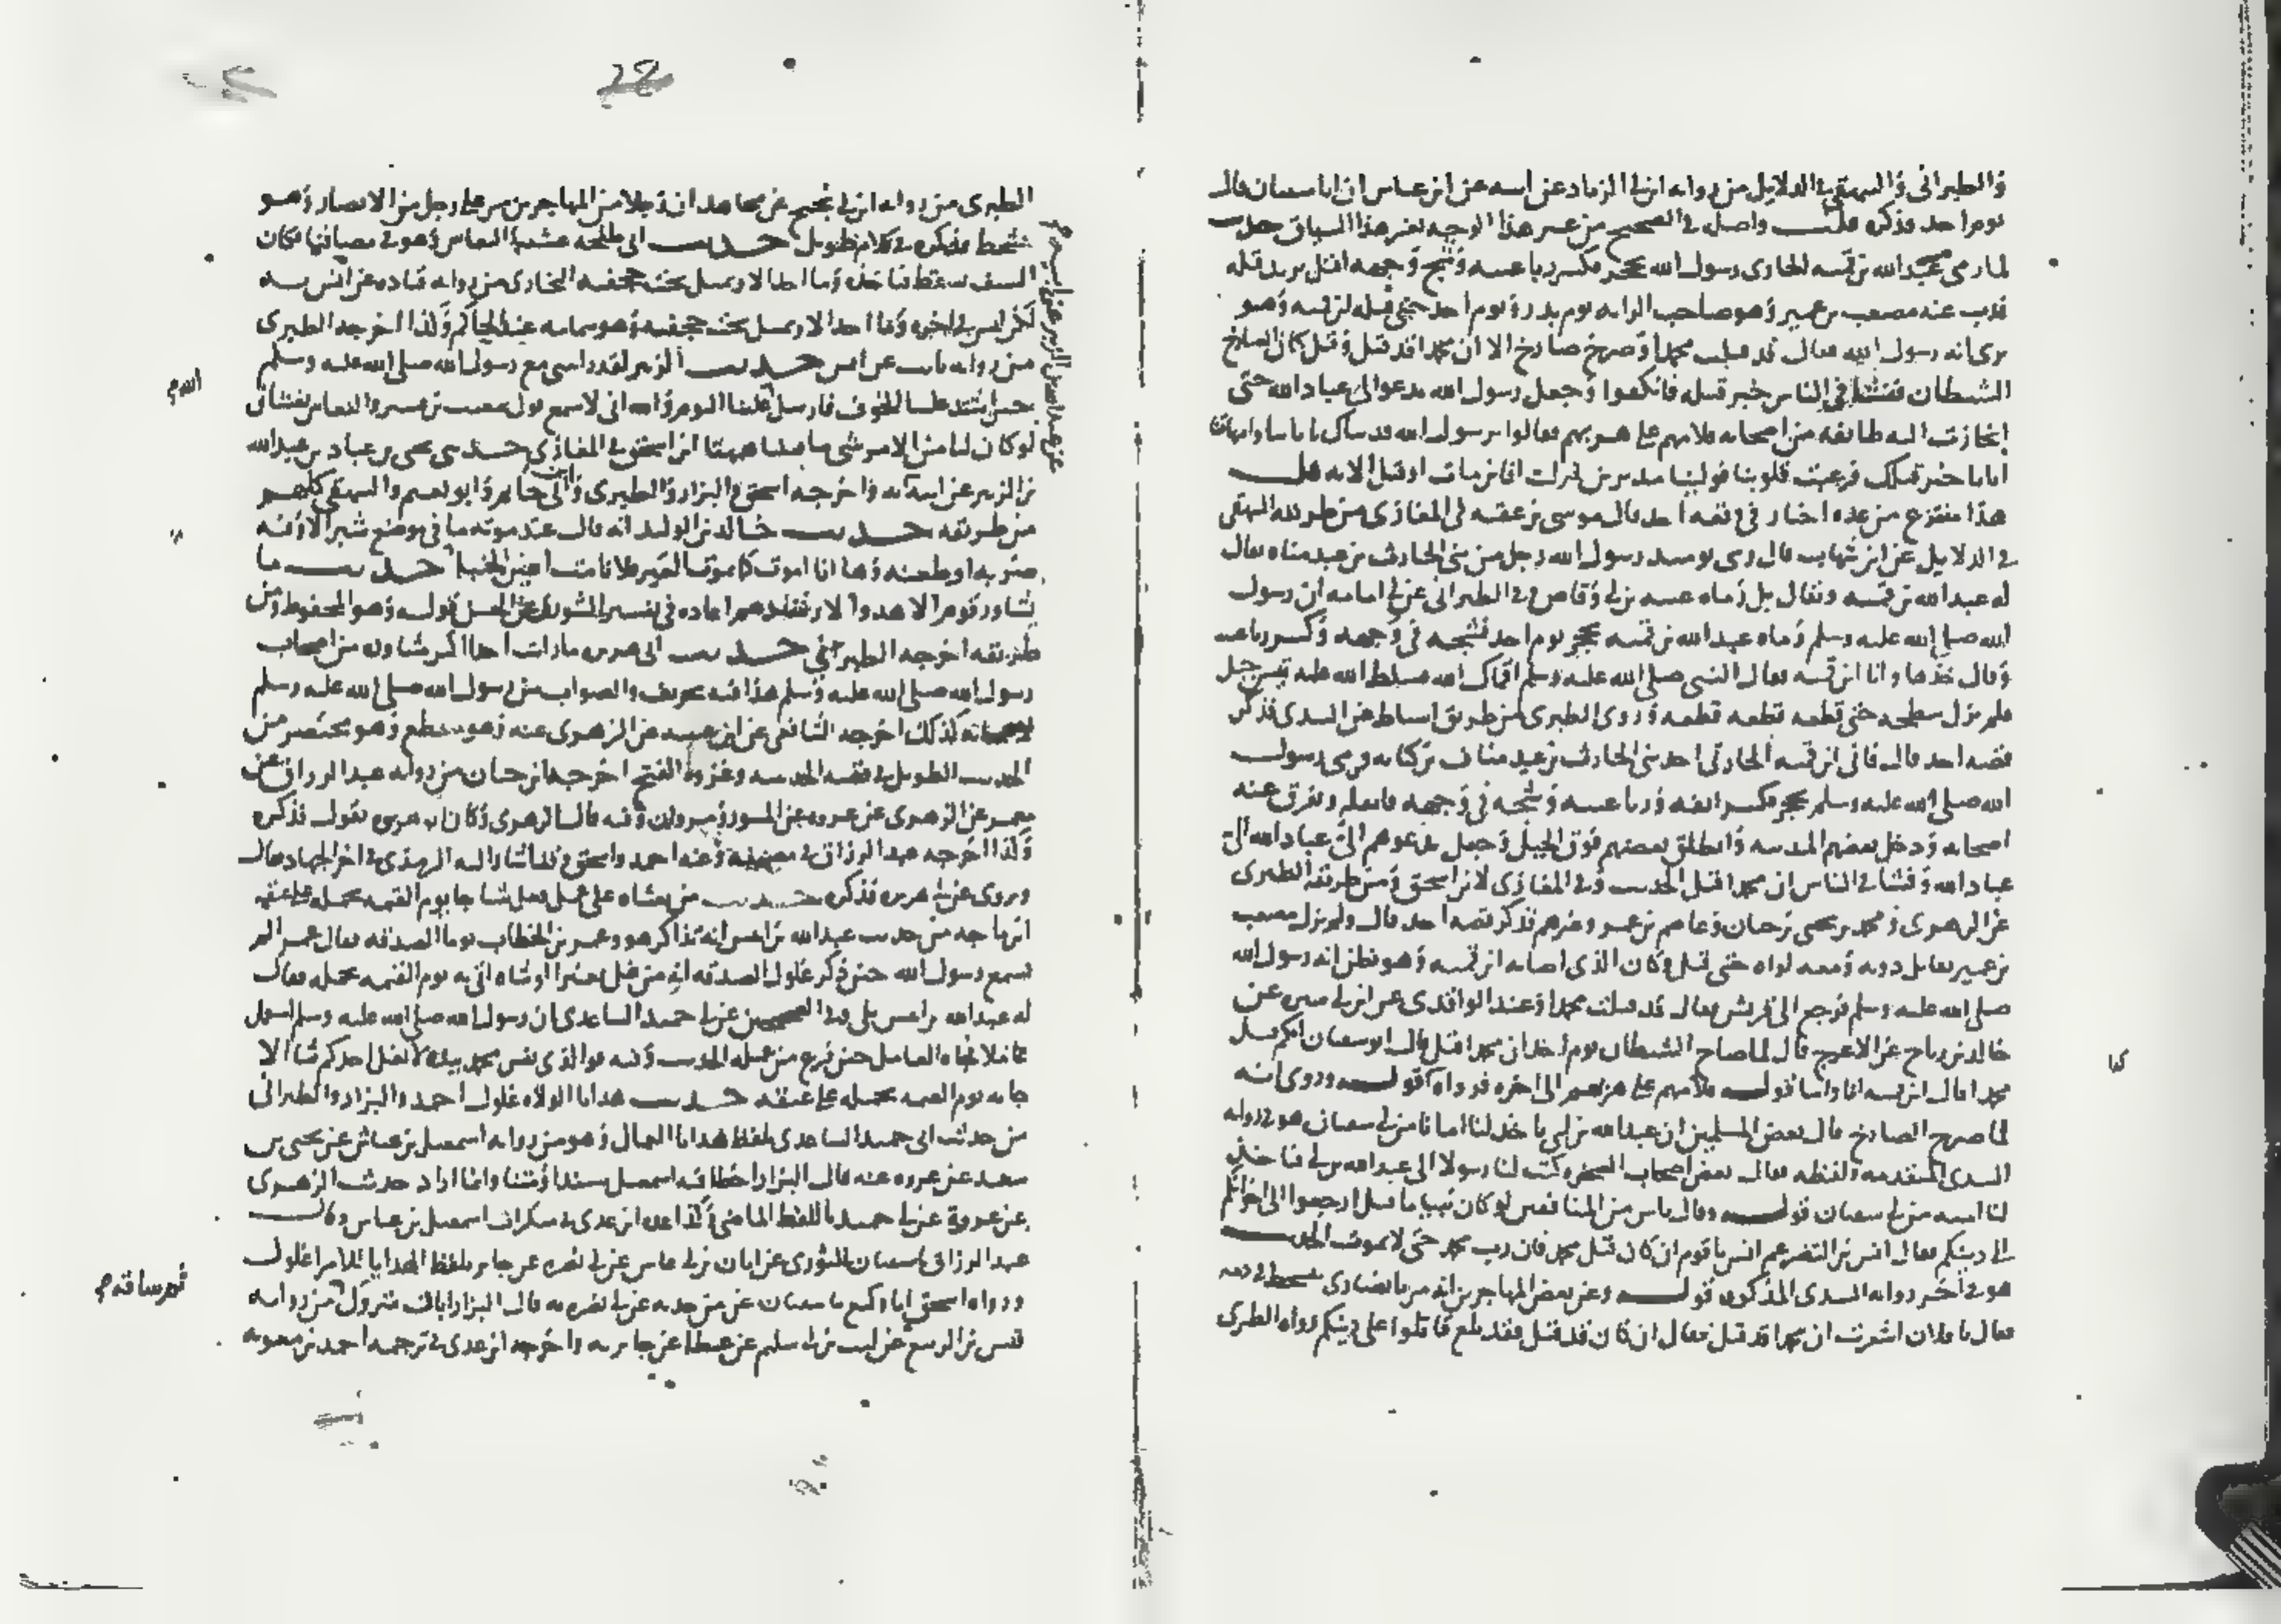 والطبراني والبيهقي في الدلايل من رواية ابن ابي الزناد عن ابيه عن ابن عباس ان ابا سفيان قال
يوم احد فذكره قلت واصل في الصحيح من غير هذا الوجه بغير هذا السياق حديث
لما رمى عبد الله بن قمئة الحارثي رسول الله بحجر فكسر رباعيته وشج وجهه اقبل يريد قتله
فذب عنه مصعب بن عمير وهو صاحب الراية يوم بدر ويوم احد حتى قتله ابن قمئة وهو
يرى انه رسول الله فقال قد قتلت محمدا وصرخ صارخ الا ان محمدا قد قتل وقيل كان الصارخ
الشيطان ففشا في الناس خبر قتله فانكفوا وجعل رسول الله يدعو الي عباد الله حتى
انحازت اليه طائفة من اصحابه فلامهم على هربهم فقالوا يرسول الله فديناك بابائنا وامهاتنا
اتانا خبر قتلك فرعبت قلوبنا فولينا مدبرين فنزلت افاين مات او قتل الاية قلت
هذا منتزع من عدة اخبار في قصة احد قال موسى بن عقبة في المغازي من طريقه البيهقي
في الدلايل عن ابن شهاب قال رمى يوميذ رسول الله رجل من بني الحارث بن عبد مناة يقال
له عبد الله بن قمئة ويقال بل رماه عتبة بن ابي وقاص وفي الطبراني عن ابي امامة ان رسول
الله صلى الله عليه وسلم رماه عبد الله بن قمئة بحجر يوم احد فشجه في وجهه وكسر رباعيته
وقال خذها وانا ابن قمئة فقال النبي صلى الله عليه وسلم اقماك الله فسلط الله عليه تيس جبل
فلم يزل ينطحه حتى قطعه قطعة قطعة وروى الطبري من طريق اسباط عن السدي فذكر
قصة احد قال فاتى ابن قمئة الحارثي احد بني الحارث بن عبد مناف بن كنانة فرمى رسول
الله صلى الله عليه وسلم بحجر فكسر انفه ورباعيته وشجه في وجهه فاثقله وتفرق عنه
اصحابه ودخل بعضهم المدينة وانطلق بعضهم فوق الجبل وجعل يدعوهم الي عباد الله الي
عباد الله وفشا في الناس ان محمدا قتل الحديث وفي المغازي لابن اسحق ومن طريقه الطبري
عن الزهري ومحمد بن يحيى بن حبان وعاصم بن عمر وغيرهم فذكر قصة احد قال ولم يزل مصعب
بن عمير يقاتل دونه ومعه لواه حتى قتل وكان الذي اصابه ابن قمئة وهو يظن انه رسول الله
صلى الله عليه وسلم فرجع الى قريش فقال قد قتلت محمدا وعند الواقدي عن ابن ابي سبرة عن
خالد بن رباح عن الاعرج قال لما صاح الشيطان يوم احد ان محمدا قتل قال ابو سفيان ايكم قتل
محمدا قال ابن قمئة انا واما قوله فلامهم على هزيمتهم الى اخره فرواه قوله وروي انه
لما صرح الصارخ قال بعض المسلمين ان عبد الله بن ابي ياخذ لنا امانا من ابي سفيان هو في رواية
السدي المتقدمة ولفظه فقال بعض اصحاب الصخرة ليت لنا رسولا الى عبد الله بن ابي فياخذ
لنا امنة من ابي سفيان قوله وقال ناس من المنافقين لو كان نبيا ما قتل ارجعوا الى اخوانكم
الى دينكم فقال انس بن النضر عم انس يا قوم ان كان قتل محمد فان رب محمد حي لا يموت الحديث
هو في اخر رواية السدي المذكورة قوله وعن بعض المهاجرين انه مر بانصاري يتشحط في دمه
فقال يا فلان اشعرت ان محمدا قد قتل فقال ان كان قد قتل فقد بلغ قاتلوا على دينكم رواه الطبري
كذا
الطبري من رواية ابن ابي نجيح عن مجاهد ان رجلا من المهاجرين مر على رجل من الانصار وهو
يتشحط فذكره في كلام طويل حديث ابي طلحة غشينا النعاس وهو في مصافنا فكان
السيف يسقط فياخذه وما احد الا ويميل تحت حجفته البخاري من رواية قتادة عن انس به
لكن ليس في اخره وما احد الا ويميل تحت حجفته وهو بتمامه عند الحاكم وكذا اخرجه الطبري
من رواية ثابت عن انس حديث الزبير لقد رايتني مع رسول الله صلى الله عليه وسلم
حين اشتد علينا الخوف فارسل علينا النوم والله اني لاسمع قول معتب بن قشير والنعاس يغشاني
لو كان لنا من الامر شي ما قتلنا ههنا ابن اسحق في المغازي حدثني يحيى بن عباد بن عبد الله
بن الزبير عن ابيه به واخرجه اسحق والبزار والطبري وابن ابي حاتم وابو نعيم والبيهقي كلهم
من طريقه حديث خالد بن الوليد انه قال عند موته ما في موضع شبر الا وفيه
ضربة او طعنة وها انا اموت كما يموت العير فلا نامت اعين الجبنا حديث ما
تشاور قوم الا هدوا لارشد امرهم اعاده في تفسير الشورى عن الحسن قوله وهو المحفوظ ومن
طريقه اخرجه الطبري حديث ابي هريرة ما رايت احدا اكثر مشاورة من اصحاب
رسول الله صلى الله عليه وسلم هذا فيه تحريف والصواب من رسول الله صلى الله عليه وسلم
لاصحابه كذلك اخرجه الشافعي عن ابن عيينة عن الزهري عنه وهو منقطع وهو مختصر من
الحديث الطويل في قصة الحديبية وغزوة الفتح اخرجه ابن حبان من رواية عبد الرزاق عن
معمر عن الزهري عن عروة عن المسور ومروان وفيه قال الزهري وكان ابو هريرة يقول فذكره
وكذا اخرجه عبد الرزاق في مصنفه وعنه احمد واسحق واشار اليه الترمذي في اخر الجهاد فقال
ويروى عن ابي هريرة فذكره حديث من بعثناه على عمل فغل شيا جا يوم القيمة يحمله على عنقه
ابن ماجه من حديث عبد الله بن انيس انه تذاكر هو وعمر بن الخطاب يوما الصدقة فقال عمر الم
تسمع رسول الله حين ذكر غلول الصدقة انه من غل بعيرا او شاة اتي به يوم القيمة يحمله فقال
له عبد الله بن انيس بلى وفي الصحيحين عن ابي حميد الساعدي ان رسول الله صلى الله عليه وسلم استعمل
عاملا فجاه العامل حين فرغ من عمله الحديث وفيه فوالذي نفس محمد بيده لا يغل احدكم شيا الا
جا به يوم القيمة يحمله على عنقه حديث هدايا الولاة غلول احمد والبزار والطبراني
من حديث ابي حميد الساعدي بلفظ هدايا العمال وهو من رواية اسمعيل بن عياش عن يحيى بن
سعيد عن عروة عنه قال البزار اخطا فيه اسمعيل سندا ومتنا وانما اراد حديث الزهري
عن عروة عن ابي حميد باللفظ الماضي وكذا عده ابن عدي في منكرات اسمعيل بن عياش وقال
عبد الرزاق سفيان الثوري عن ابان بن ابي عياش عن ابي نضرة عن جابر بلفظ الهدايا للامرا غلول
ورواه اسحق انا وكيع نا سفيان عمن حدثه عن ابي نضرة به قال البزار ابان متروك من رواية
قيس بن الربيع عن ليث بن ابي سليم عن عطا عن جابر به واخرجه ابن عدي في ترجمة احمد بن معوية
عن عبد الله بن الزبير عن ابيه